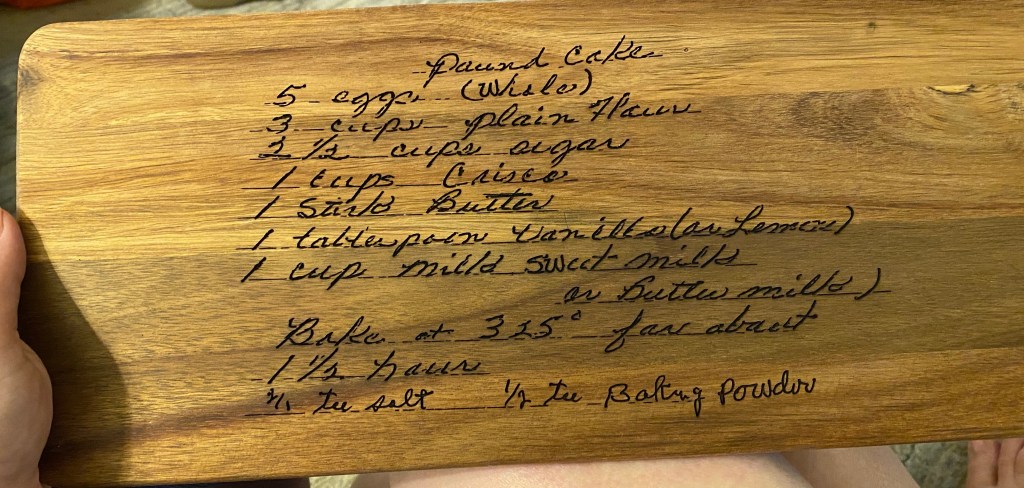 Pound Cake
5 eggs (Whole)
3 cups plain Flour
2 1/2 cups sugar
1 cups Crisco
1 Stick Butter
1 tablespoon Vanilla (or Lemon)
1 cup milk sweet milk
or Butter milk)
Bake at 325° for about
1 1/2 hour
tea salt 1/2 tea Baking Powder